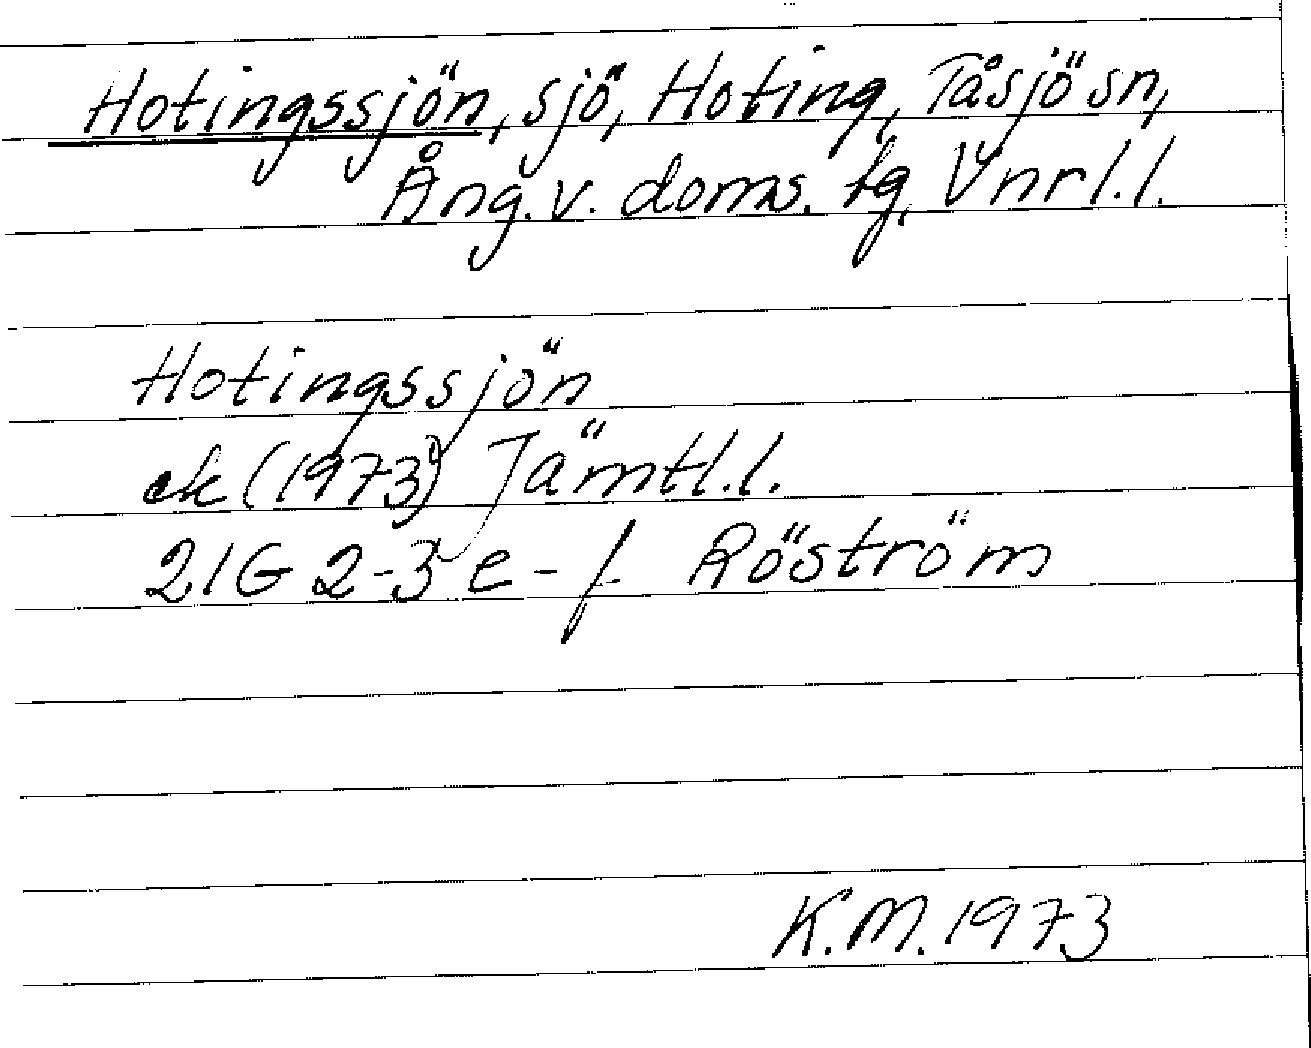 Hotingssjön, sjö, Hoting, Tåsjö sn,
Ång. v. doms. tg, Vnrl.l.
Hotingssjön
ek (1973) Jämtl.l.
21G 2-3 e-f Röström
K.M. 1973